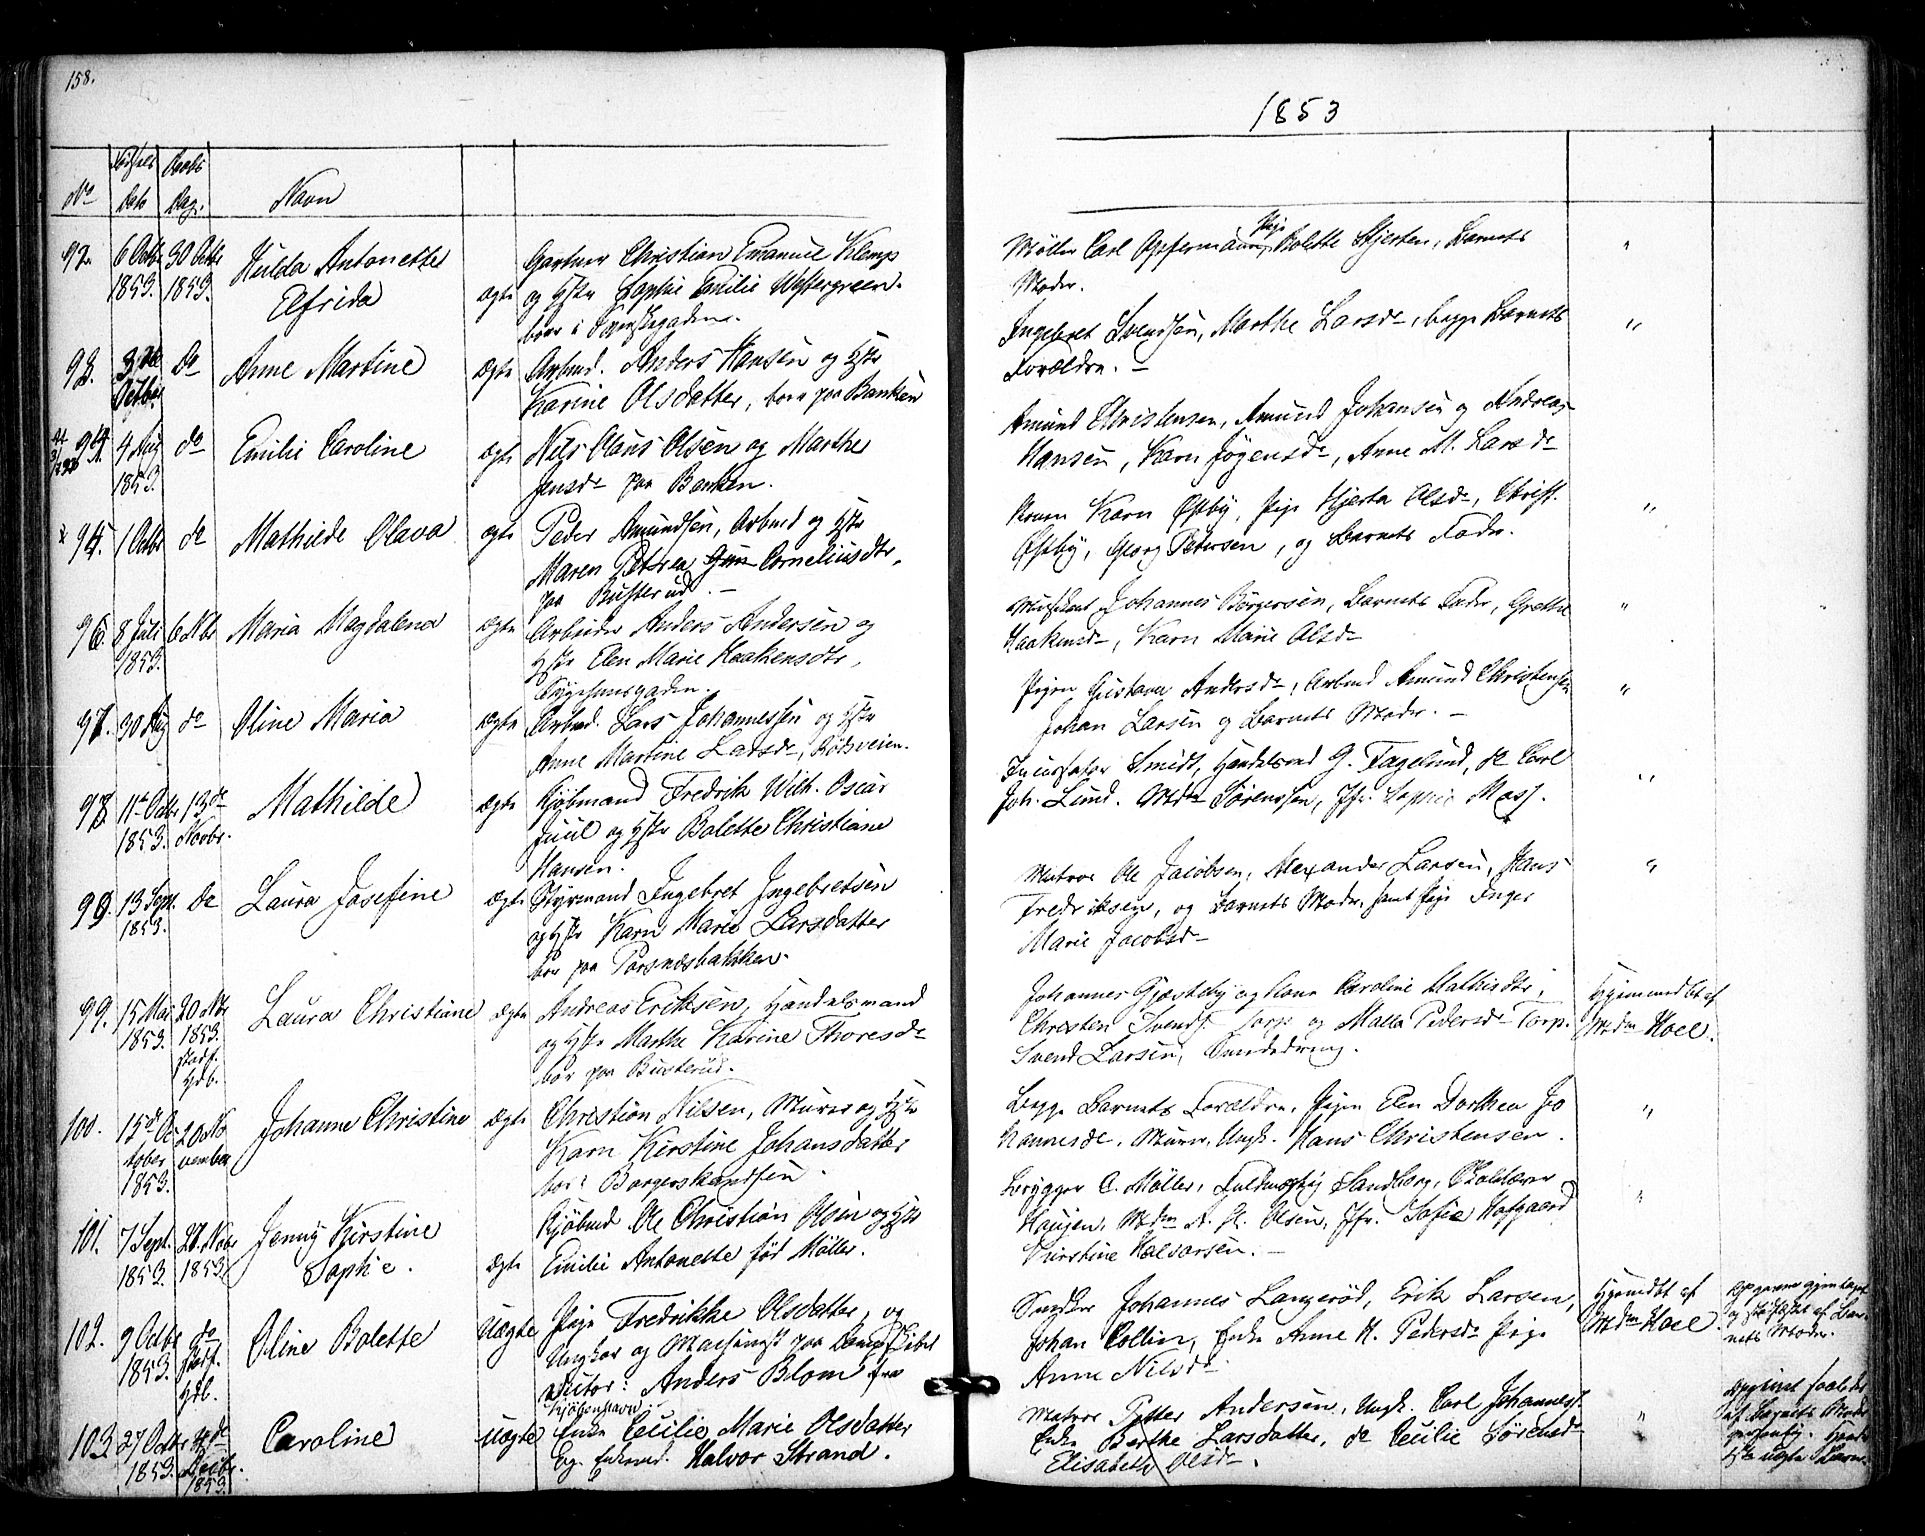 158.
1853
No
Fødsels Dato
Daabs Dag.
Navn
92. 6 Octbr 1853. 30 Octbr 1853. Hulda Antonette Elfrida ægte
Gartner Christian Emanuel Klemp
og Hstr Sophie Emilie Westergreen.
boer i
Møller Carl Opfermann, Pige Bolette Hjerten, Barnets
Moder. "
93. Octbr do Anne Martine ægte
Arbmd. Anders Hansen og Hstr
Karine Olsdatter, boer paa Banken
Ingebret Svendsen, Marthe Larsd, begge Barnets
Forældre. "
94. 4 Aug 1853. do Emilie Caroline ægte
Nils Claus Olsen og Marthe
Jensd paa Banken.
Amund Christensen, Amund Johansen og Andreas
Hansen, Karn Jögensd, Anne M. Larsd
95. 1 Octbr do Mathilde Olava ægte
Peder Amundsen, Arbmd og Hstr
Maren Petrea Corneliusdtr,
paa Busterud.
Konen Karn Østby, Pige Hjerta Olsd, Christ.
Østby, Georg Petersen, og Barnets Fader. "
96. 8 Juli 1853. 6 Nbr Maria Magdalena ægte
Arbeider Anders Andersen og
Hstr Elen Marie Haakensdtr,
Sygehuusgaden.
Musikant Johannes Börgersen, Barnets Fader, Grethe
Haakensd, Karn Marie Olsd "
97. 30 Aug do Oline Maria ægte
Arbmd. Lars Johannessen og Hstr
Anne Martine Larsd, Rödsveien.
Pigen Gustava Andersd, Arbmd Amund Christensen
Johan Larsen og Barnets Moder. "
98. 11te Octbr 1853. 13de Novbr. Mathilde ægte
Kjøbmand Fredrik Wilh. Oscar
Juul og Hstr Bolette Christiane
Hansen.
Smidt, Handelsmd G. Fagelund, do Carl
Joh. Lund. Mdm Sörenssen, Jfr. Sophie Moss. "
99. 13 Sept. 1853. do Laura Josefine ægte
Styrmand Ingebret Ingebretsen
og Hstr Karn Marie Larsdatter
boer paa Torsnæsbakken.
Matros Ole Jacobsen, Alexander Larsen, Hans
Fredriksen, og Barnets Moder, samt Pige Inger
Marie Jacobsd "
99. 15 Mai 1853. 20 Nbr 1853. Stadf. Hdb. Laura Christiane ægte
Andreas Eriksen, Handelsmand
og Hstr Marthe Karine Thoresd
boer paa Busterud.
Johannes Gjæsteby og Kone Caroline Mathisdtr,
Christen Svends. Torp og Malla Pedersd Torp.
Svend Larsen,
Hjemmedbt af
Mdm Hoel.
100. 15de October 1853. 20 November Johanne Christine ægte
Christian Nilsen, Murer og Hstr
Karn Kirstine Johansdatter
boer i Borgerskandsen.
Begge Barnets Forældre, Pigen Elen Dorthea Jo
hannesd, Murer, Ungk. Hans Christensen. "
101. 7 Sept. 1853. 20. Novbr 1853. Jenny Kirstine Sophie. ægte
Kjöbmd Ole Christian Olsen og Hstr
Emilie Antonette født Møller.
Brygger C. Møller, Fuldmægtig Sandberg, Skolelærer
Haujen, Mdm A. H. Olsen, Jfr. Sofie Hofgaard
Kirstine Halvorsen. "
102. 9 Octbr 1853. do Stadf. Hdb. Oline Bolette Uægte
Pige Fredrikke Olsdatter, og
Ungkar og Maskinist paa Dampskibet
Anders Blom fra
Kjöbenhavn.
Snedker Johannes Langeröd, Erik Larsen,
Johan Collin, Enke Anne H. Pedersd Pige
Anne Nilsd
Hjemdbt af
Mdm Hoel
Opgivne gjentaget
og af Bar-
nets Moder.
103. 27 Octbr 1853. 4de Decbr. 1853. Caroline Uægte
Enke Cecilie Marie Olsdatter
Og Enkemd. Halvor Strand.
Matros Petter Andersen, Ungk. Carl Johanness.
Enke Berthe Larsdatter, do Cecilie Sörensd
Elisabeth Olsd. "
Opgivet saaledes
af Barnets Moder
uægte Barn.